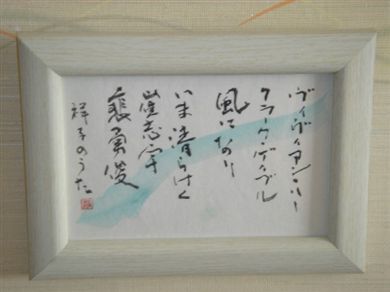 ヴィヴィアン・リー
クラーク・ゲーブル
風になり
いま清らけく
崔志宇
裵勇俊
祥子のうた